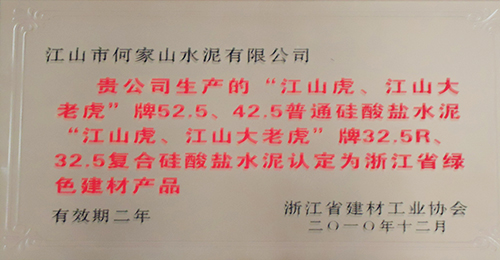 江山市何家山水泥有限公司
贵公司生产的“江山虎、江山大
老虎”牌52.5、42.5普通硅酸盐水泥
“江山虎、江山大老虎”牌32.5R、
32.5复合硅酸盐水泥认定为浙江省绿
色建材产品
有效期二年
浙江省建材工业协会
二○一○年十二月